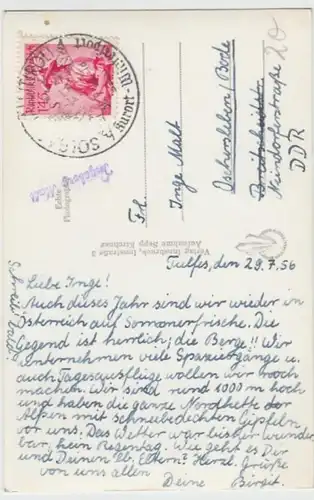 Frl.
Inge Malt
Oschersleben/Bode
Neindorferstraße 20
DDR
Echte
Photographie
Verlag Innsbruck, Innstraße 3
Aufnahme Sepp
Tulfes, den 29.7.56
Schreib bald!
Liebe Inge!
Auch dieses Jahr sind wir wieder in
Österreich auf Sommerfrische. Die
Gegend ist herrlich, die Berge!! Wir
unternehmen viele Spaziergänge u.
auch Tagesausflüge wollen wir noch
machen. Wir sind rund 1000 m hoch
und haben die ganze Nordkette der
Alpen mit schneebedeckten Gipfeln
vor uns. Das Wetter war bisher wunder
bar, kein Regentag. Wie geht es Dir
und Deinen lb. Eltern? Herzl. Grüße
von uns allen
Deine Birgit.